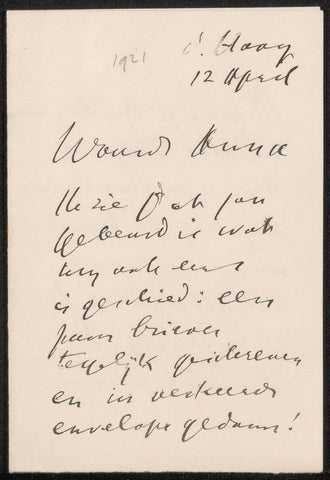 1921
d'. Haag
12 April
Waarde
Ik zie
gebeurd is wat
ook eens
is geschied: een
paar brieven
tegelijk geschreven
en in verkeerde
enveloppe gedaan!